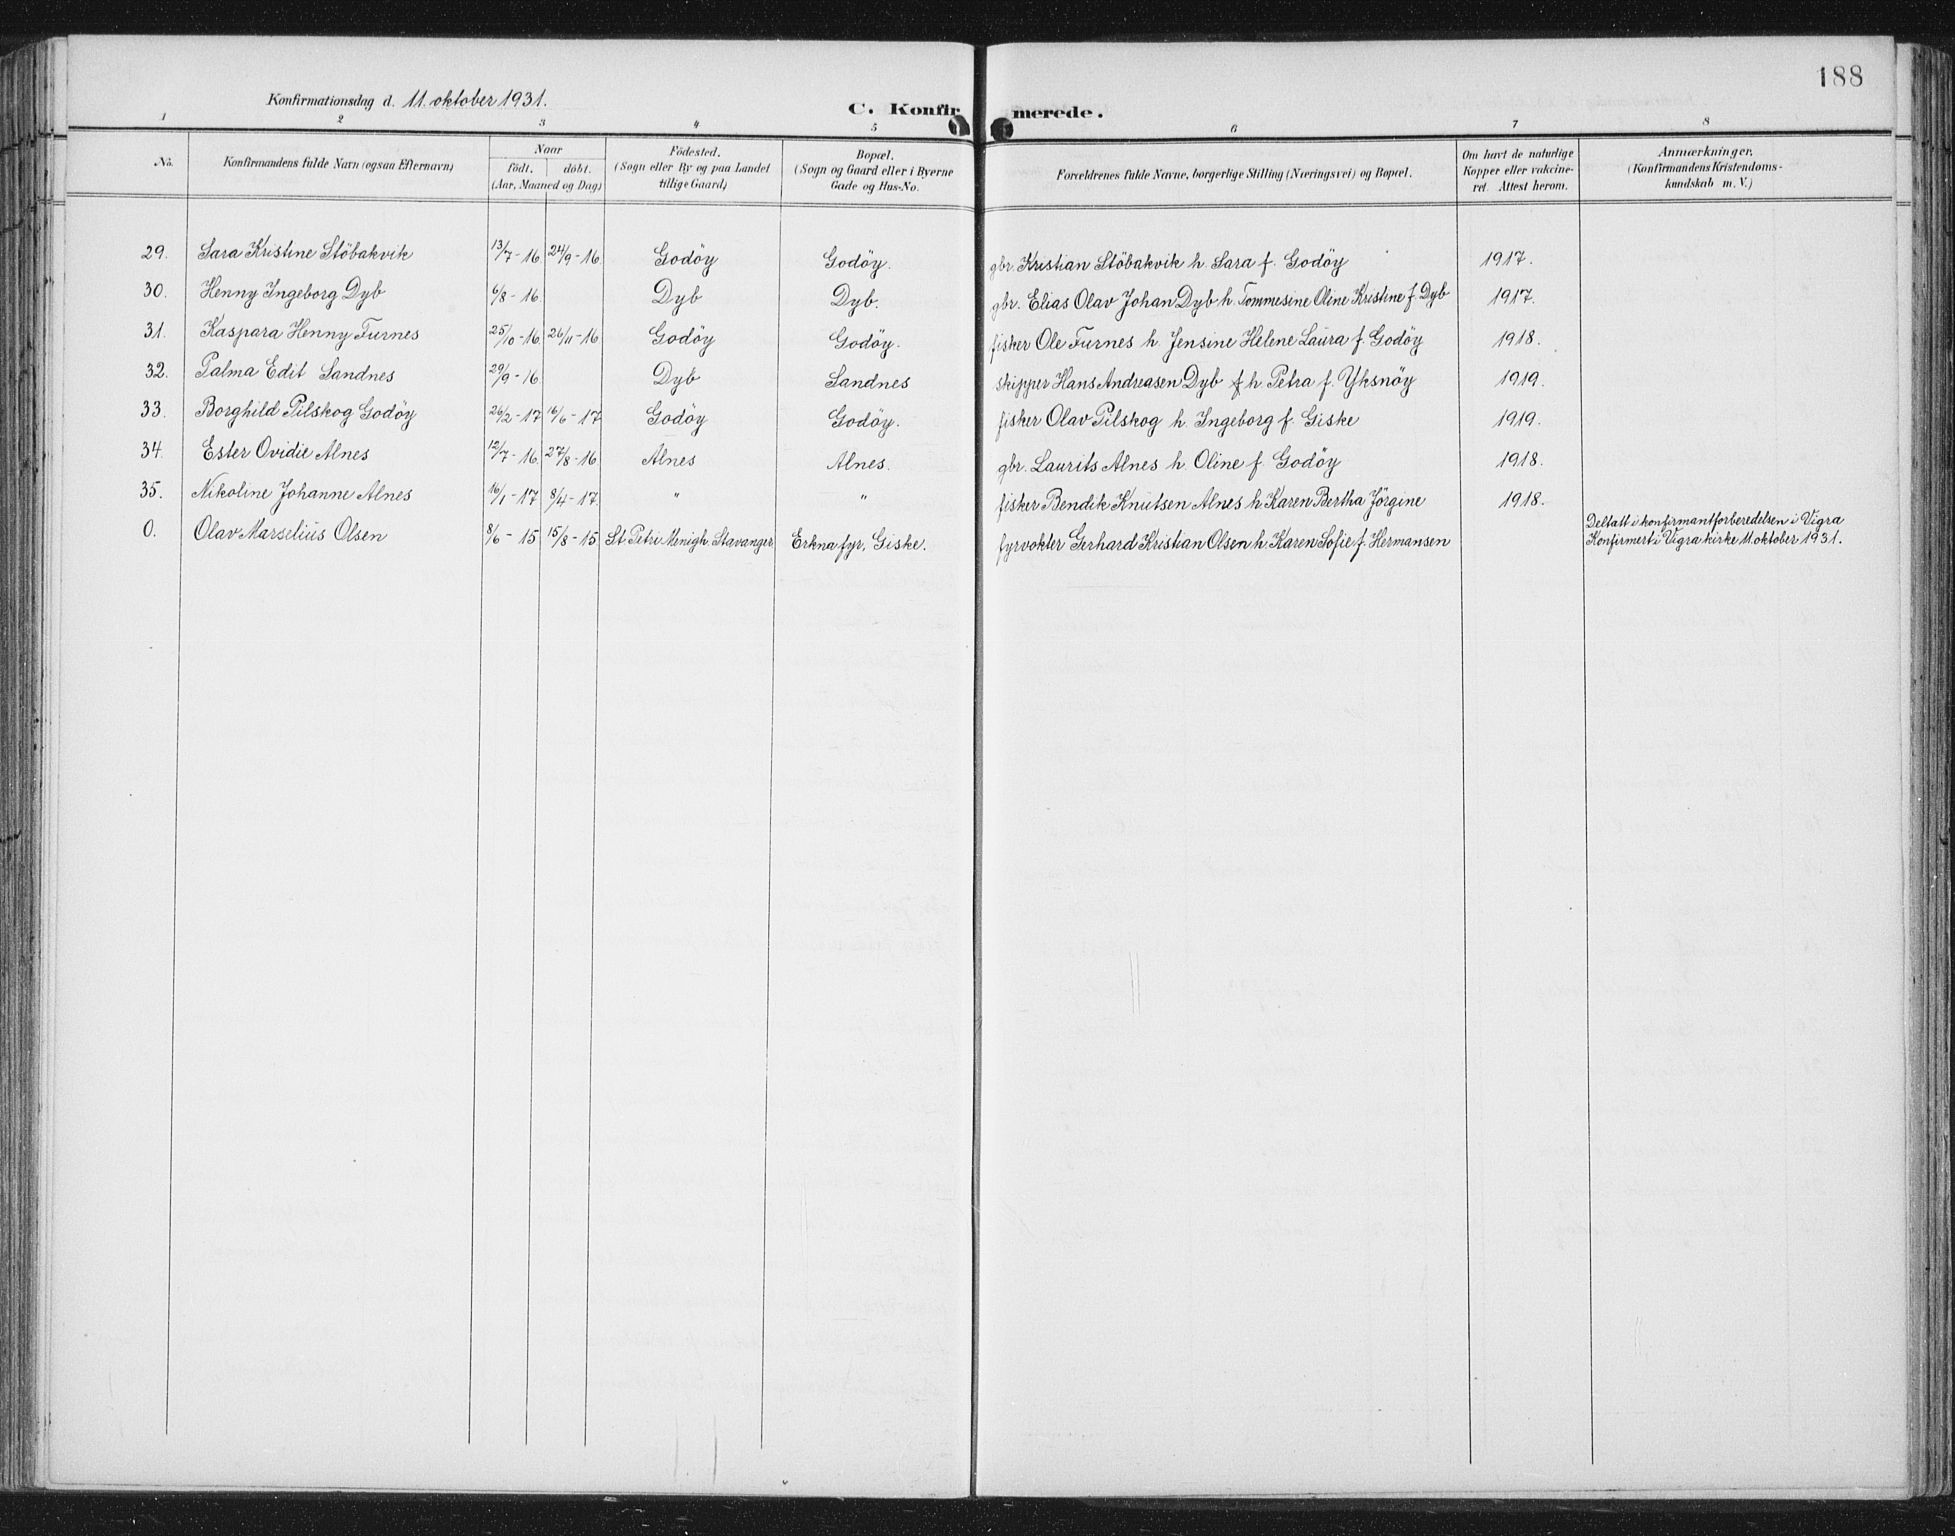 188
Konfirmationsdag d. 11. oktober 1931.
C. Konfirmerede.
1 2 3 4 5 6 7 8
No. Konfirmandens fulde Navn (ogsaa Efternavn) Naar födt. döbt. (Aar, Maaned og Dag) Födested. (Sogn eller By og paa Landet tillige Gaard) Bopæl. (Sogn og Gaard eller i Byerne Gade og Hus-No. Forældrenes fulde Navne, borgerlige Stilling (Næringsvei) og Bopæl. Om havt de naturlige Kopper eller vakcineret. Attest herom. Anmærkninger. (Konfirmandens Kristendomskundskab m. V.)
29. Sara Kristine Stöbakvik 13/7-16 24/9-16 Godöy Godöy. gbr. Kristian Stöbakvik h. Sara f. Godöy 1917.
30. Henny Ingeborg Dyb 6/8-16 Dyb Dyb. gbr. Elias Olav Johan Dyb h. Tommesine Oline Kristine f. Dyb 1917.
31. Kaspara Henny Furnes 25/10-16 26/11-16 Godöy Godöy. fisker Ole Furnes h. Jensine Helene Laura f. Godöy 1918.
32. Palma Edit Sandnes 29/9-16 Dyb Sandnes skipper Hans Andreasen Dyb f h Petra f. Yksnöy 1919.
33. Borghild Pilskog Godöy 26/2-17 16/6-17 Godöy Godöy. fisker Olav Pilskog h. Ingeborg f. Giske 1919.
34. Ester Ovidie Alnes 12/7-16 27/8-16 Alnes Alnes. gbr. Laurits Alnes h. Oline f. Godöy 1918.
35. Nikoline Johanne Alnes 16/1-17 8/4-17 " " fisker Bendik Knutsen Alnes h Karen Bertha Jörgine 1918.
0. Olav Marselius Olsen 8/6-15 15/8-15 St. Petri Menigh. Stavanger Erkna fyr, Giske. fyrvokter Gerhard Kristian Olsen h. Karen Sofie f. Hermansen Deltatt i konfirmantforberedelsen i Vigra
Konfirmert i Vigra kirke 11. oktober 1931.